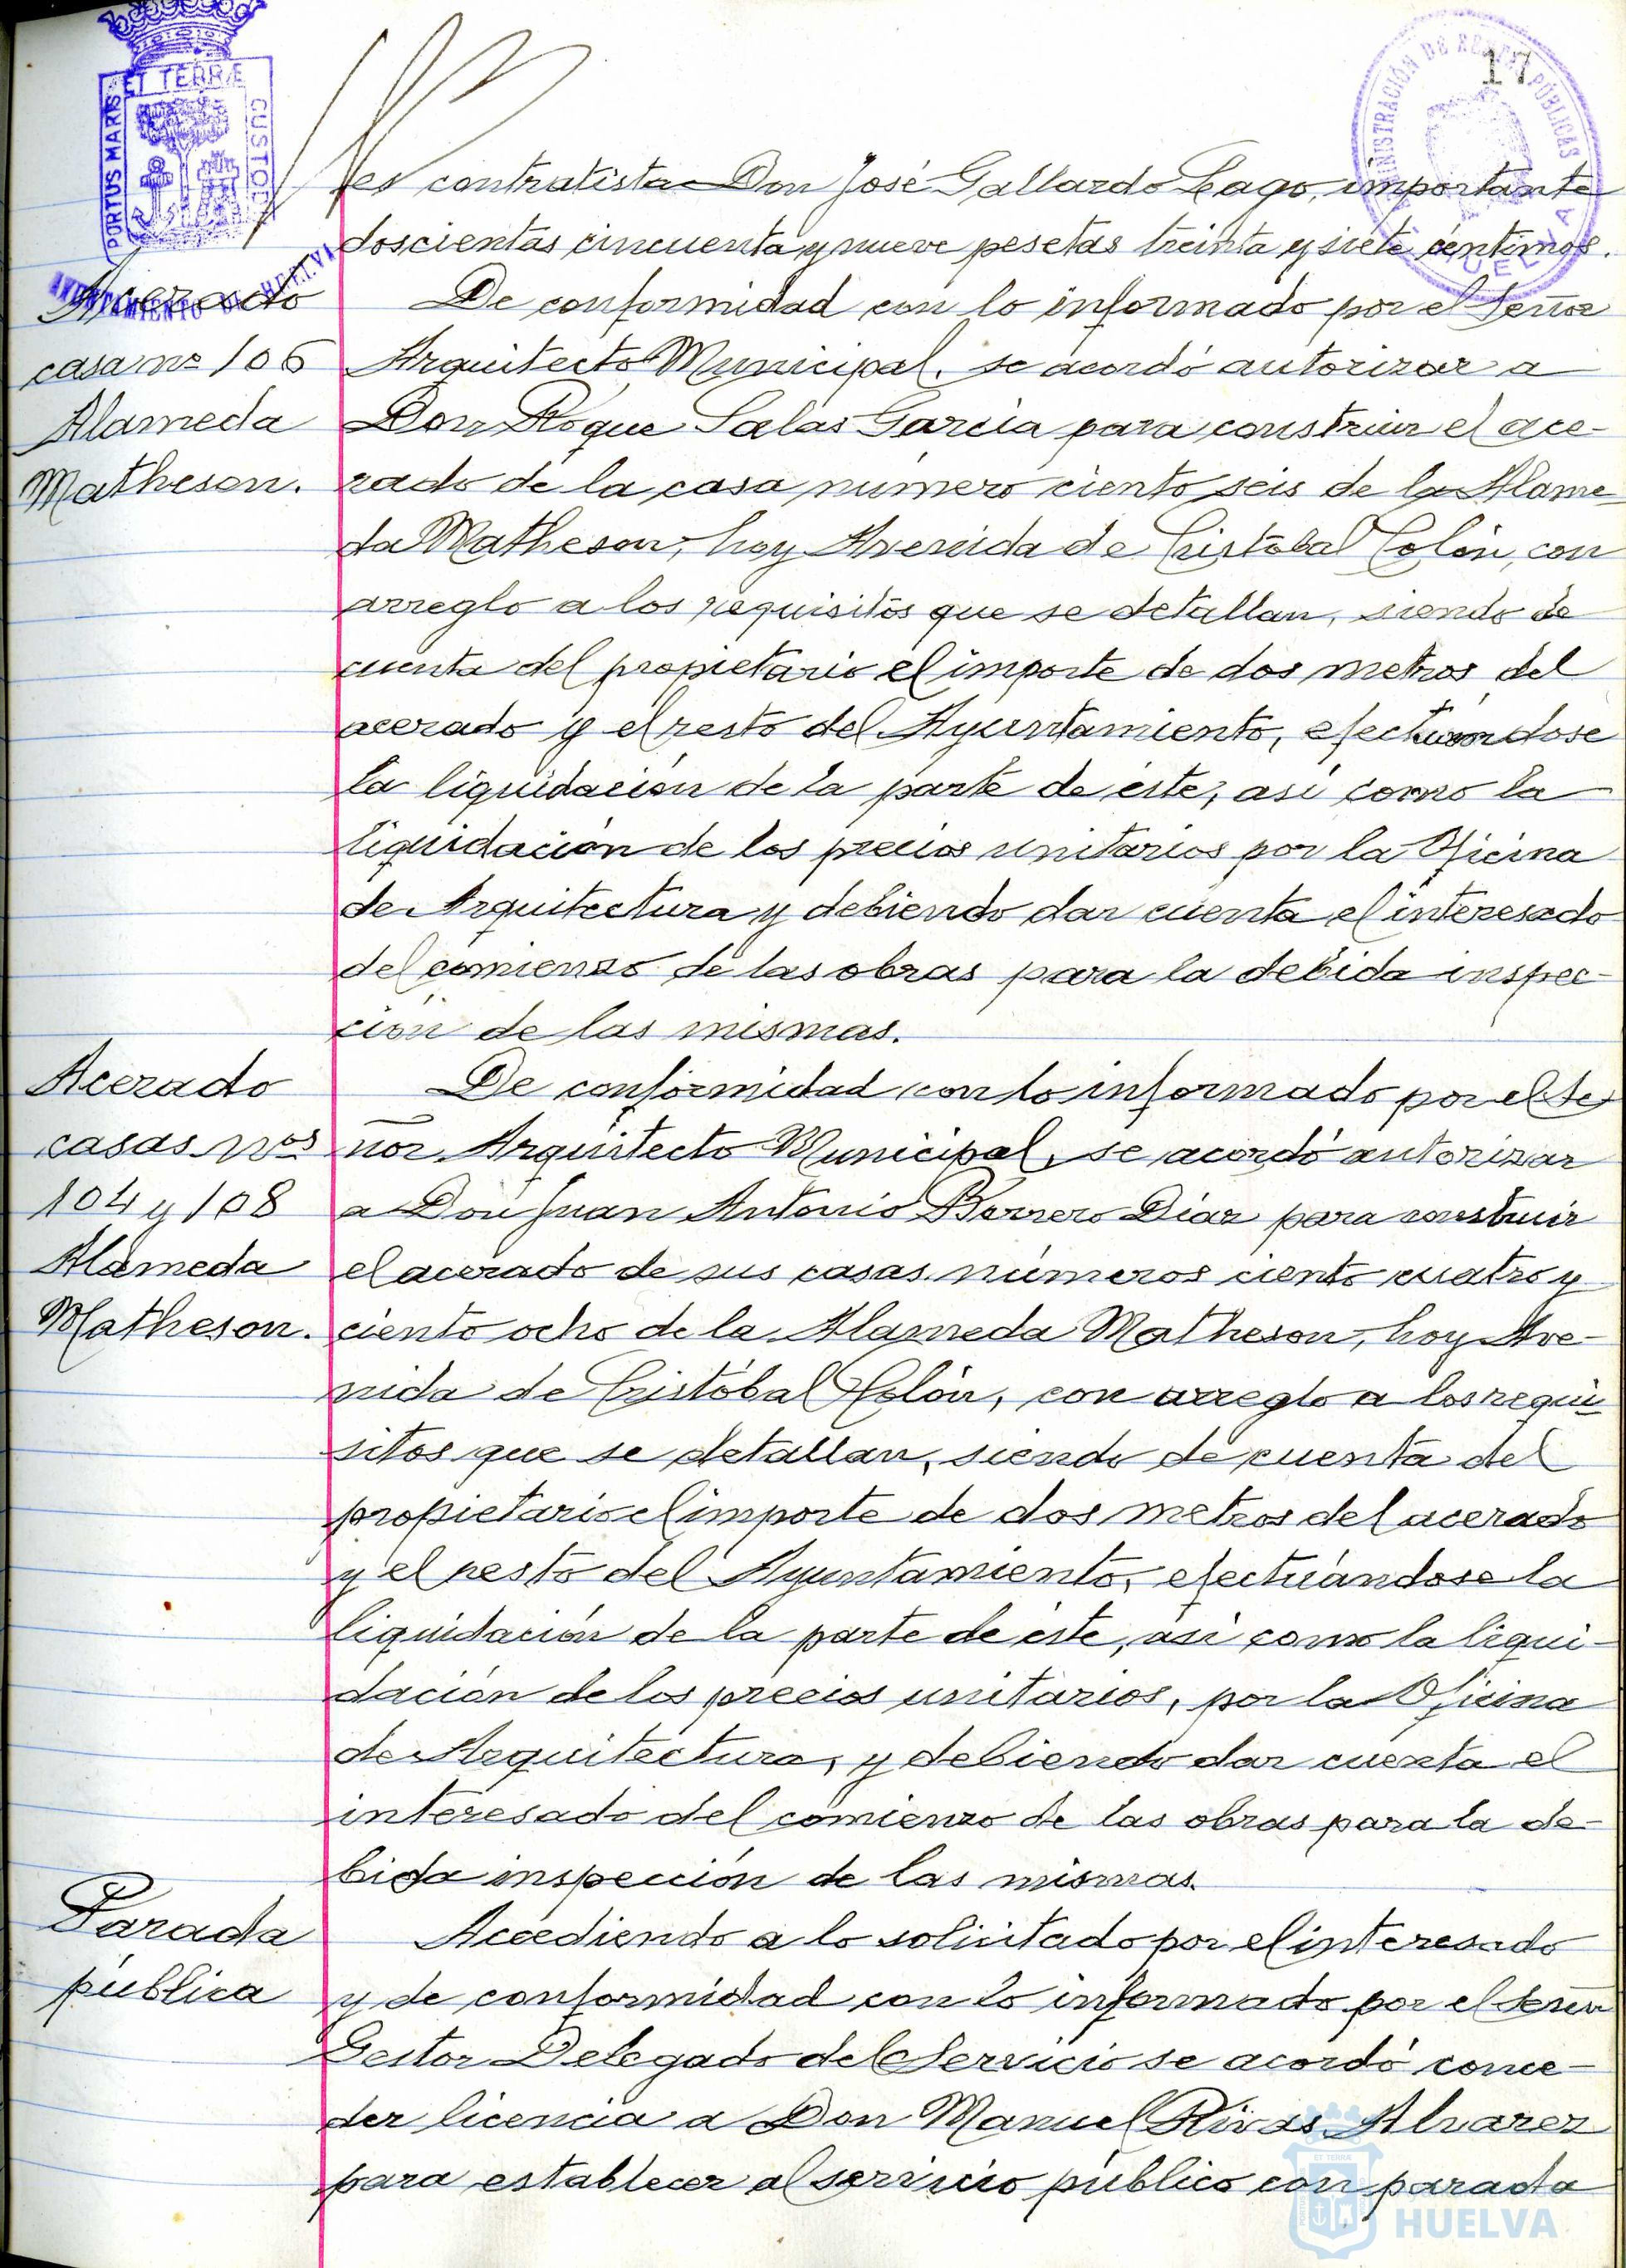 17
PORTUS MARIS ET TERRÆ CUSTODIA
AYUNTAMIENTO DE HUELVA
ADMINISTRACIÓN DE RENTAS PÚBLICAS
HUELVA
es contratista Don José Gallardo Lago, importante
doscientas cincuenta y nueve pesetas treinta y siete céntimos.
Acerado
casa nº 106
Alameda
Matheson.
De conformidad con lo informado por el Señor
Arquitecto Municipal, se acordó autorizar a
Don Roque Salas García para construir el ace-
rado de la casa número ciento seis de la Alame-
da Matheson, hoy Avenida de Cristóbal Colón, con
arreglo a los requisitos que se detallan, siendo de
cuenta del propietario el importe de dos metros del
acerado y el resto del Ayuntamiento, efectuándose
la liquidación de la parte de éste, así como la
liquidación de los precios unitarios por la Oficina
de Arquitectura y debiendo dar cuenta el interesado
del comienzo de las obras para la debida inspec-
ción de las mismas.
Acerado
casas nos
104 y 108
Alameda
Matheson.
De conformidad con lo informado por el Se-
ñor Arquitecto Municipal, se acordó autorizar
a Don Juan Antonio Borrero Díaz para construir
el acerado de sus casas números ciento cuatro y
ciento ocho de la Alameda Matheson, hoy Ave-
nida de Cristóbal Colón, con arreglo a los requi-
sitos que se detallan, siendo de cuenta del
propietario el importe de dos metros del acerado
y el resto del Ayuntamiento, efectuándose la
liquidación de la parte de éste, así como la liqui-
dación de los precios unitarios, por la Oficina
de Arquitectura, y debiendo dar cuenta el
interesado del comienzo de las obras para la de-
bida inspección de las mismas.
Parada
pública
Accediendo a lo solicitado por el interesado
y de conformidad con lo informado por el Señor
Gestor Delegado del Servicio se acordó conce-
der licencia a Don Manuel Rivas Alvarez
para establecer al servicio público con parada
HUELVA